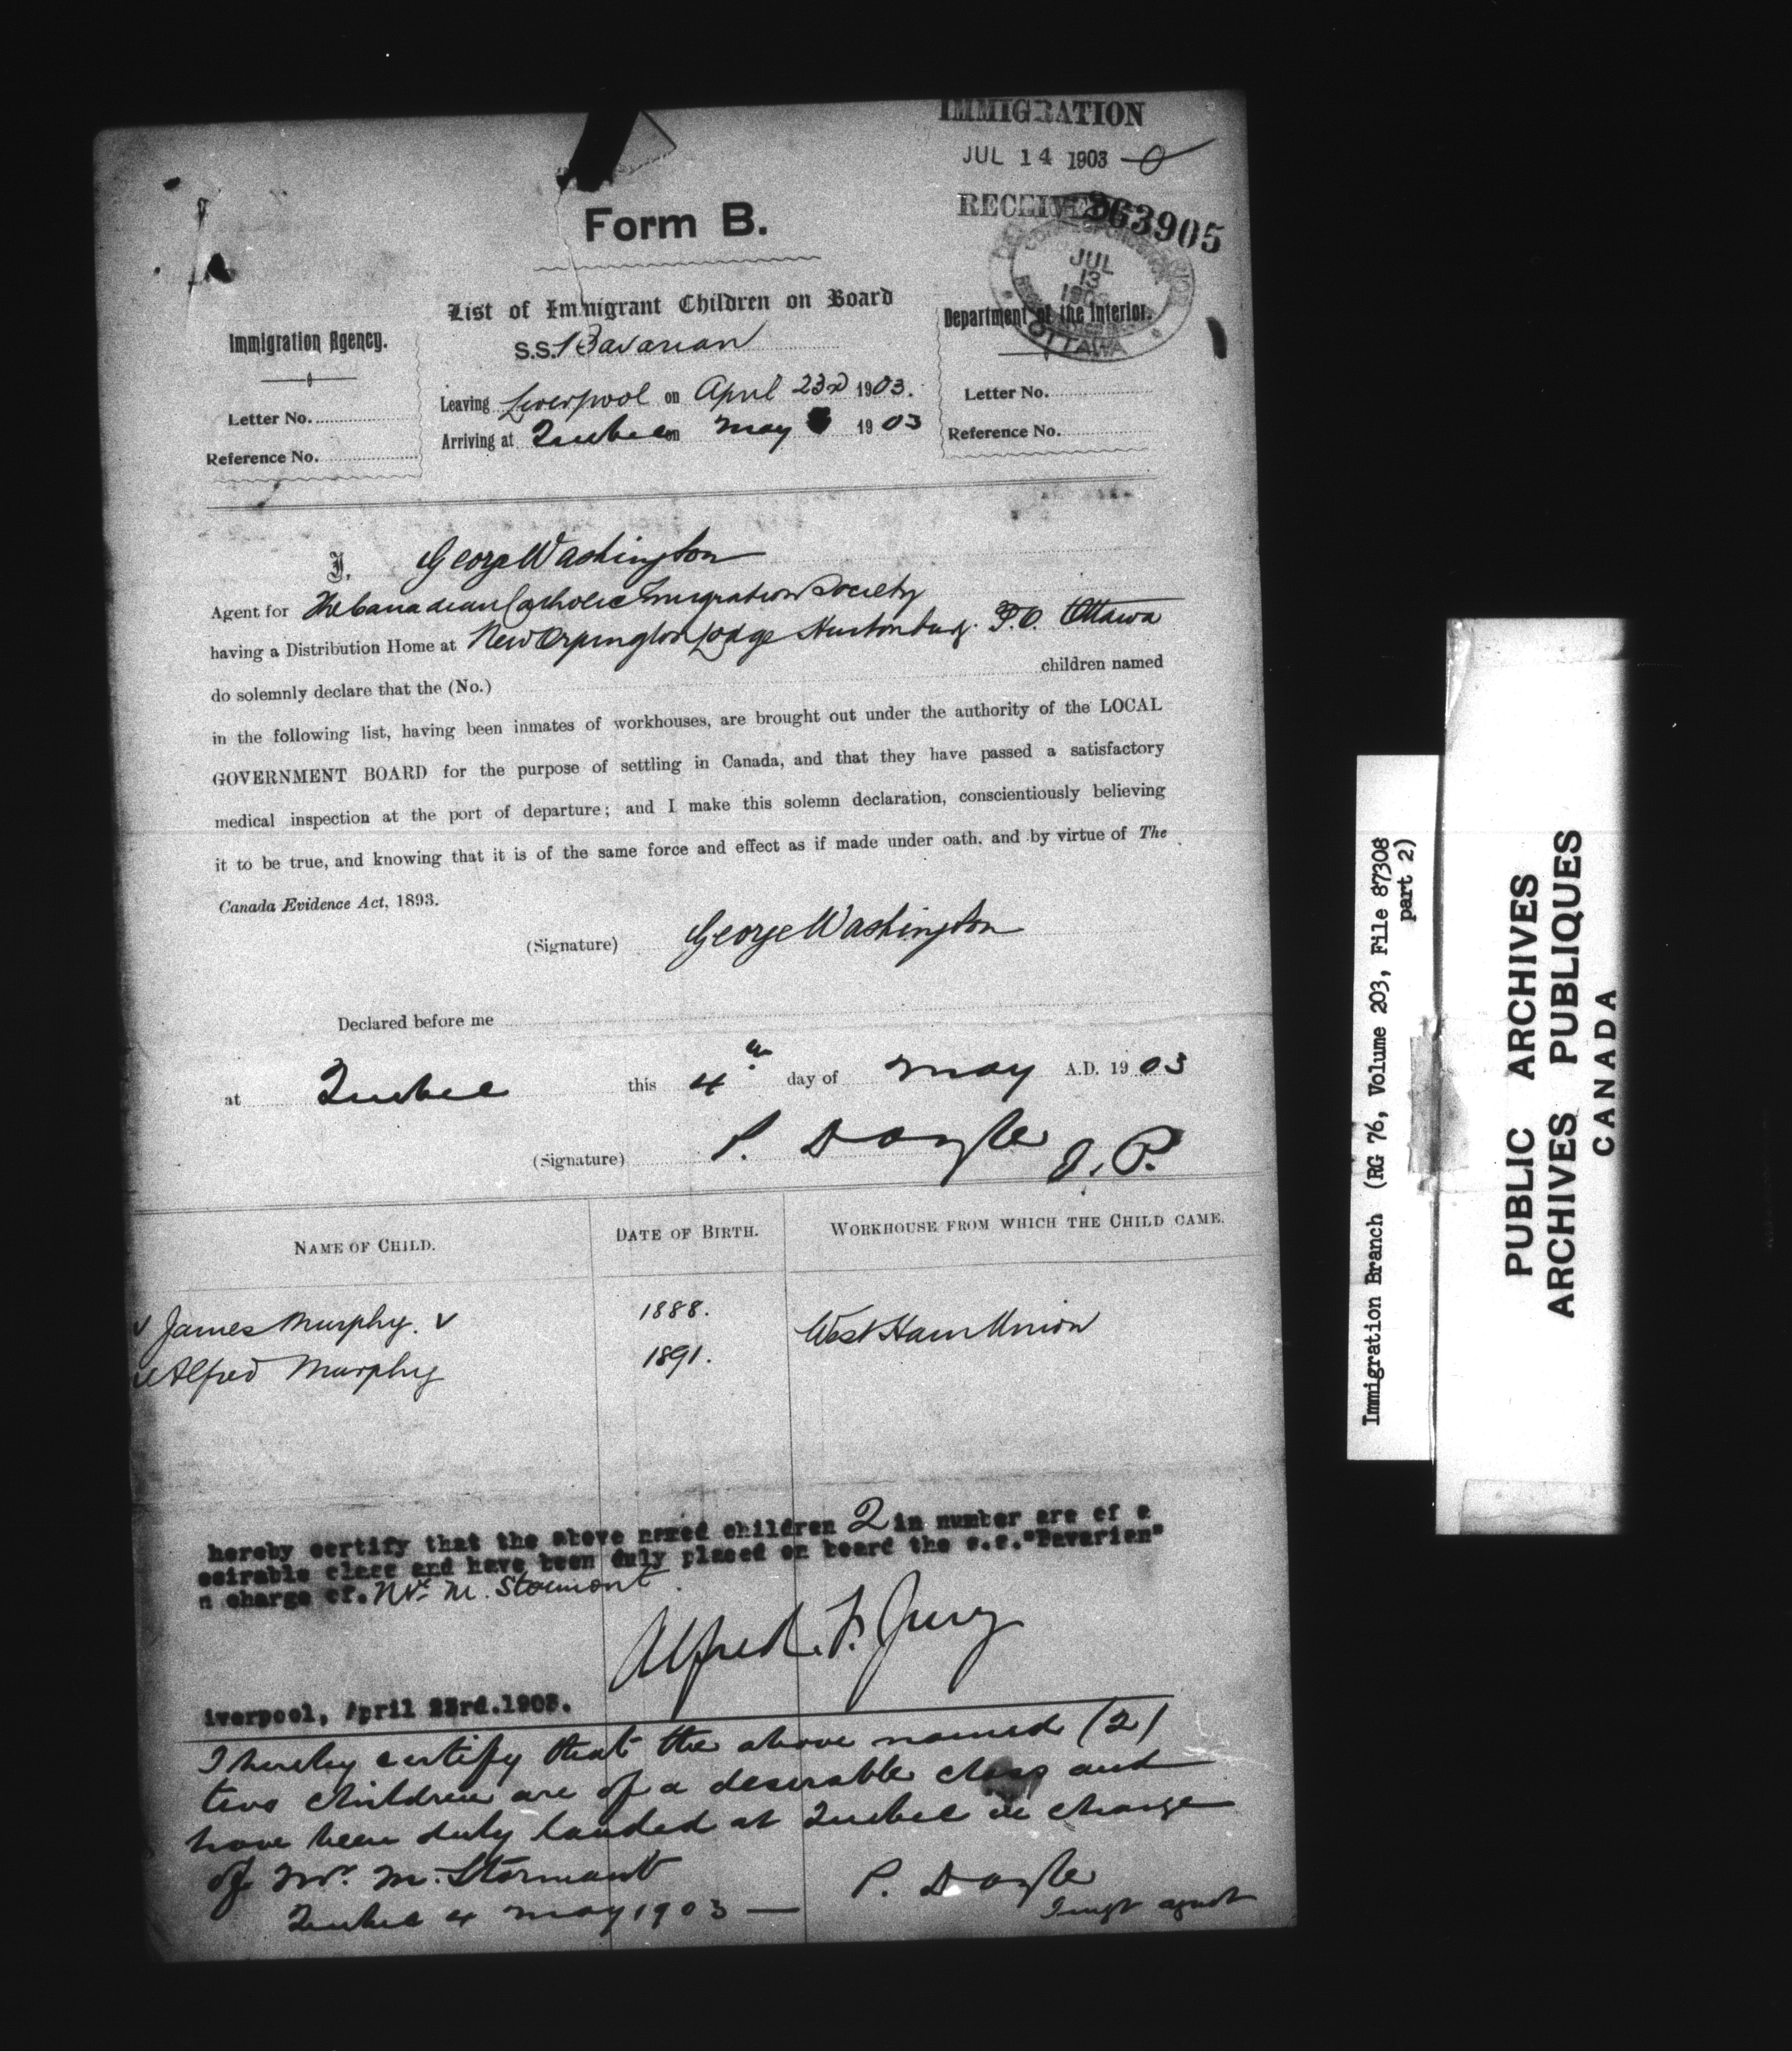 IMMIGRATION
JUL 14 1903
RECEIVED
363905
JUL
13
OTTAWA
Form B.
List of Immigrant Children on Board
S.S. Bavarian
Leaving Liverpool on April 23rd 1903.
Arriving at Quebec on May 1903
Immigration Agency.
Letter No.
Reference No.
Department of the Interior.
Letter No.
Reference No.
I, George Washington
Agent for The Canadian Catholic Emigration Society
having a Distribution Home at New Orpington Lodge Hintonburg. P.O. Ottawa
do solemnly declare that the (No.) children named
in the following list, having been inmates of workhouses, are brought out under the authority of the LOCAL
GOVERNMENT BOARD for the purpose of settling in Canada, and that they have passed a satisfactory
medical inspection at the port of departure; and I make this solemn declaration, conscientiously believing
it to be true, and knowing that it is of the same force and effect as if made under oath, and by virtue of The
Canada Evidence Act, 1893.
(Signature) George Washington
Declared before me
at Quebec this 4th day of May A.D. 1903
(Signature) P. Doyle J.P.
NAME OF CHILD. DATE OF BIRTH. WORKHOUSE FROM WHICH THE CHILD CAME.
James Murphy. 1888. West Ham Union
Alfred Murphy 1891.
hereby certify that the above named children 2 in number are of a
esirable class and have been duly placed on board the s.s."Bavarian"
n charge of. Mr. M. Stormont.
Alfred. F. Jury
iverpool, April 23rd.1903.
I hereby certify that the above named (2)
two children are of a desirable class and
have been duly landed at Quebec in charge
of Mr. M. Stormont
Quebec 4 May 1903 —
P. Doyle
Immgt agent
Immigration Branch (RG 76, Volume 203, File 87308
part 2)
PUBLIC ARCHIVES
ARCHIVES PUBLIQUES
CANADA